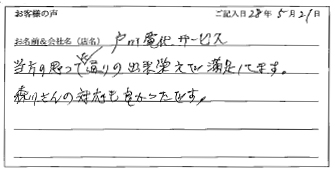 お客様の声
ご記入日28年5月21日
お名前&会社名(店名) 戸川電化サービス
当方の思って通りの出来栄えで満足してます。
森川さんの対応も良かったです。